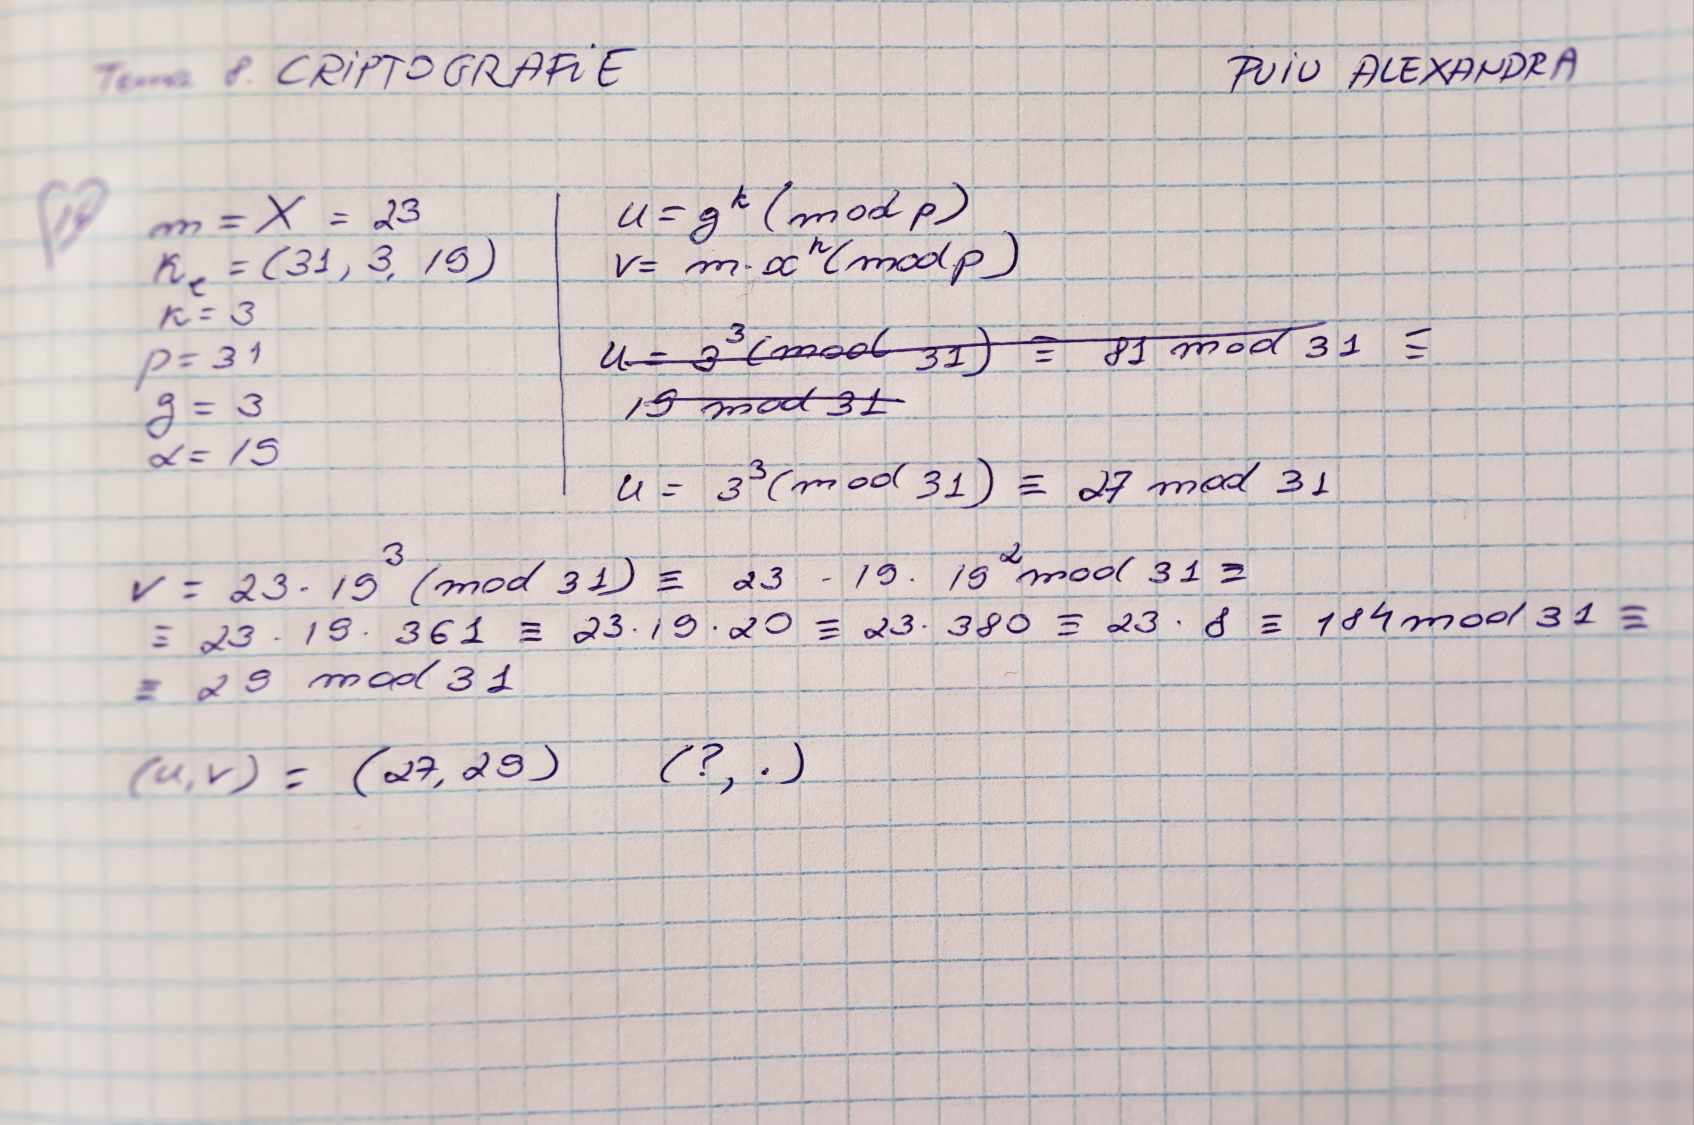 Tema 8. CRIPTOGRAFIE
PUIU ALEXANDRA
m = X = 23
Ke = (31, 3, 19)
k = 3
p = 31
g = 3
α = 19
u = g^k (mod p)
v = m · α^k (mod p)
u = 3^3 (mod 31) ≡ 81 mod 31 ≡
19 mod 31
u = 3^3 (mod 31) ≡ 27 mod 31
v = 23 · 19^3 (mod 31) ≡ 23 · 19 · 19^2 mod 31 ≡
≡ 23 · 19 · 361 ≡ 23 · 19 · 20 ≡ 23 · 380 ≡ 23 · 8 ≡ 184 mod 31 ≡
≡ 29 mod 31
(u, v) = (27, 29) (?, .)